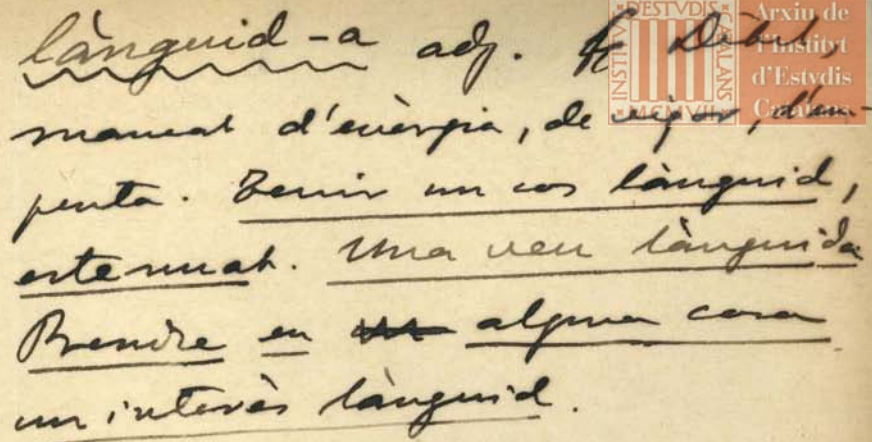 lànguid -a adj. Dèbil,
mancat d'enèrgia, de vigor, d'em-
penta. Tenir un cos lànguid,
extenuat. Una veu lànguida
Prendre en alguna cosa
un interès lànguid.
Arxiu de
l'Institvt
d'Estvdis
Catalans
INSTITVT D'ESTVDIS CATALANS
MCMVII